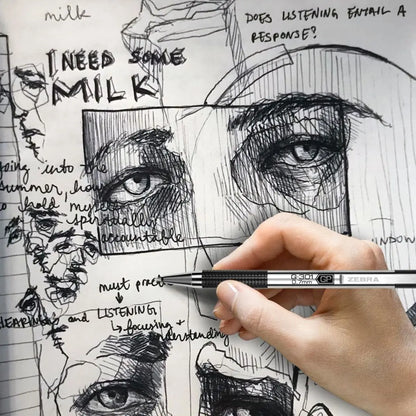 milk
DOES LISTENING ENTAIL A
RESPONSE?
I NEED SOME
MILK
going into the
summer, how
to hold myself
spiritually
accountable
INDOW
must practice
HEARING and LISTENING
↳ focusing +
understanding
G-301
0.7mm
GP
ZEBRA